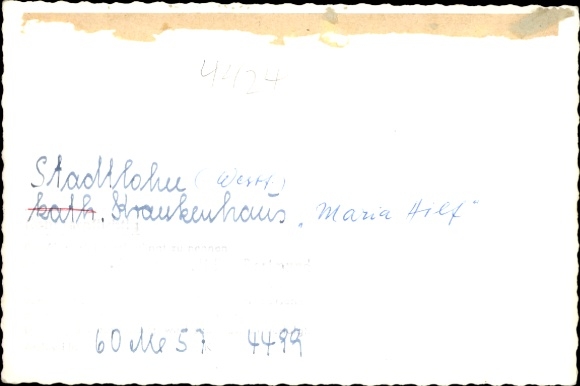 4424
Stadtlohn (Westf.)
kath. Krankenhaus „Maria Hilf"
60 Me 57 4499